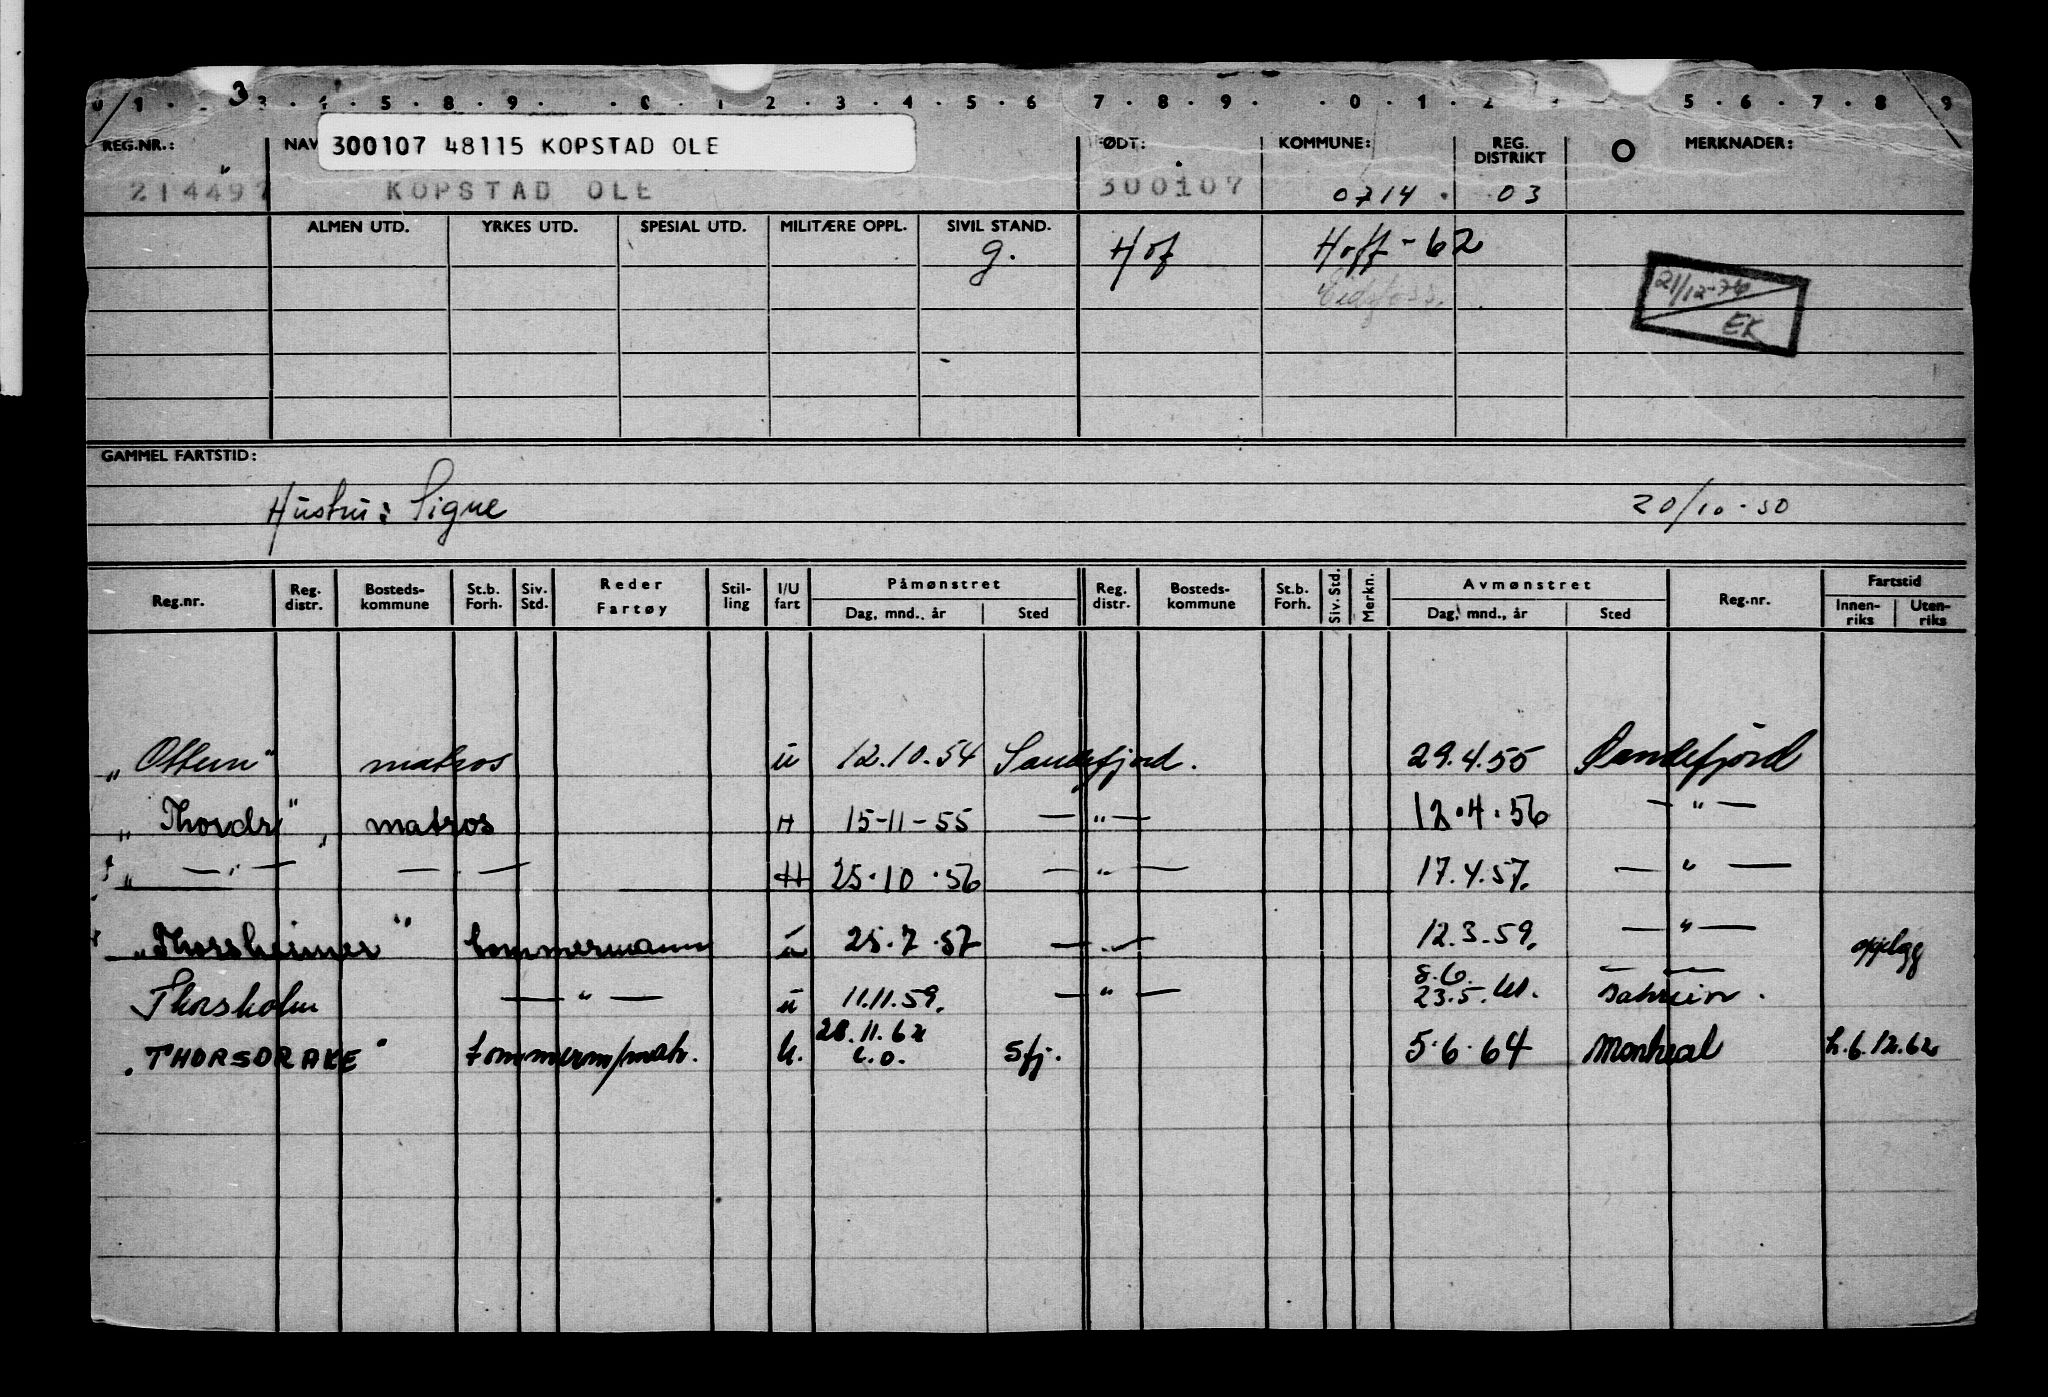 0 1 . . 3 3 . 4 . 5 . 8 . 9 . . 0 . 1 . 2 . 3 . 4 . 5 . 6 7 . 8 . 9 . . 0 . 1 . 2 5 . 6 . 7 . 8 9
REG.NR.: NAV 300107 48115 KOPSTAD OLE ØDT: KOMMUNE: REG. DISTRIKT O MERKNADER:
214497 KOPSTAD OLE 300107 0714 . 03
ALMEN UTD. YRKES UTD. SPESIAL UTD. MILITÆRE OPPL. SIVIL STAND.
g. Hof Hoff - 62
Eidsfoss. 21/12-76
EK
GAMMEL FARTSTID:
Hustru: Signe 20/10-50
Reg.nr. Reg. distr. Bosteds-kommune St.b. Forh. Siv. Std. Reder Fartøy Stil-ling I/U fart Påmønstret Reg. distr. Bosteds-kommune St.b. Forh. Siv. Std. Merkn. Avmønstret Reg.nr. Fartstid
Dag, mnd., år Sted Dag, mnd., år Sted Innen-riks Uten-riks
"Ottern" matros u 12.10.54 Sandefjord. 29.4.55 Sandefjord
"Thordr", matros H 15-11-55 — " — 12.4.56 — " —
" — " — — " — H 25.10.56 — " — 17.4.57. — " —
"Thorsheimer" tømmermann u 25.7.57 — " — 12.3.59. — " — opplegg
Thorsholm — " — u 11.11.59. — " — 8.6. 23.5.61. Bahrein.
"THORSDRAKE" tømmerm/matr. U. 28.11.62 t.o. Sfj. 5.6.64 Montreal h.6.12.62